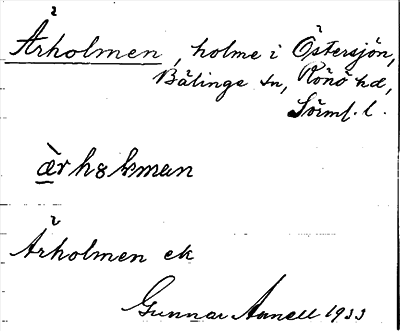 Årholmen, holme i Östersjön,
Bälinge sn, Rönö hd,
Sörml. l.
Årholmen ek
Gunnar Annell 1933